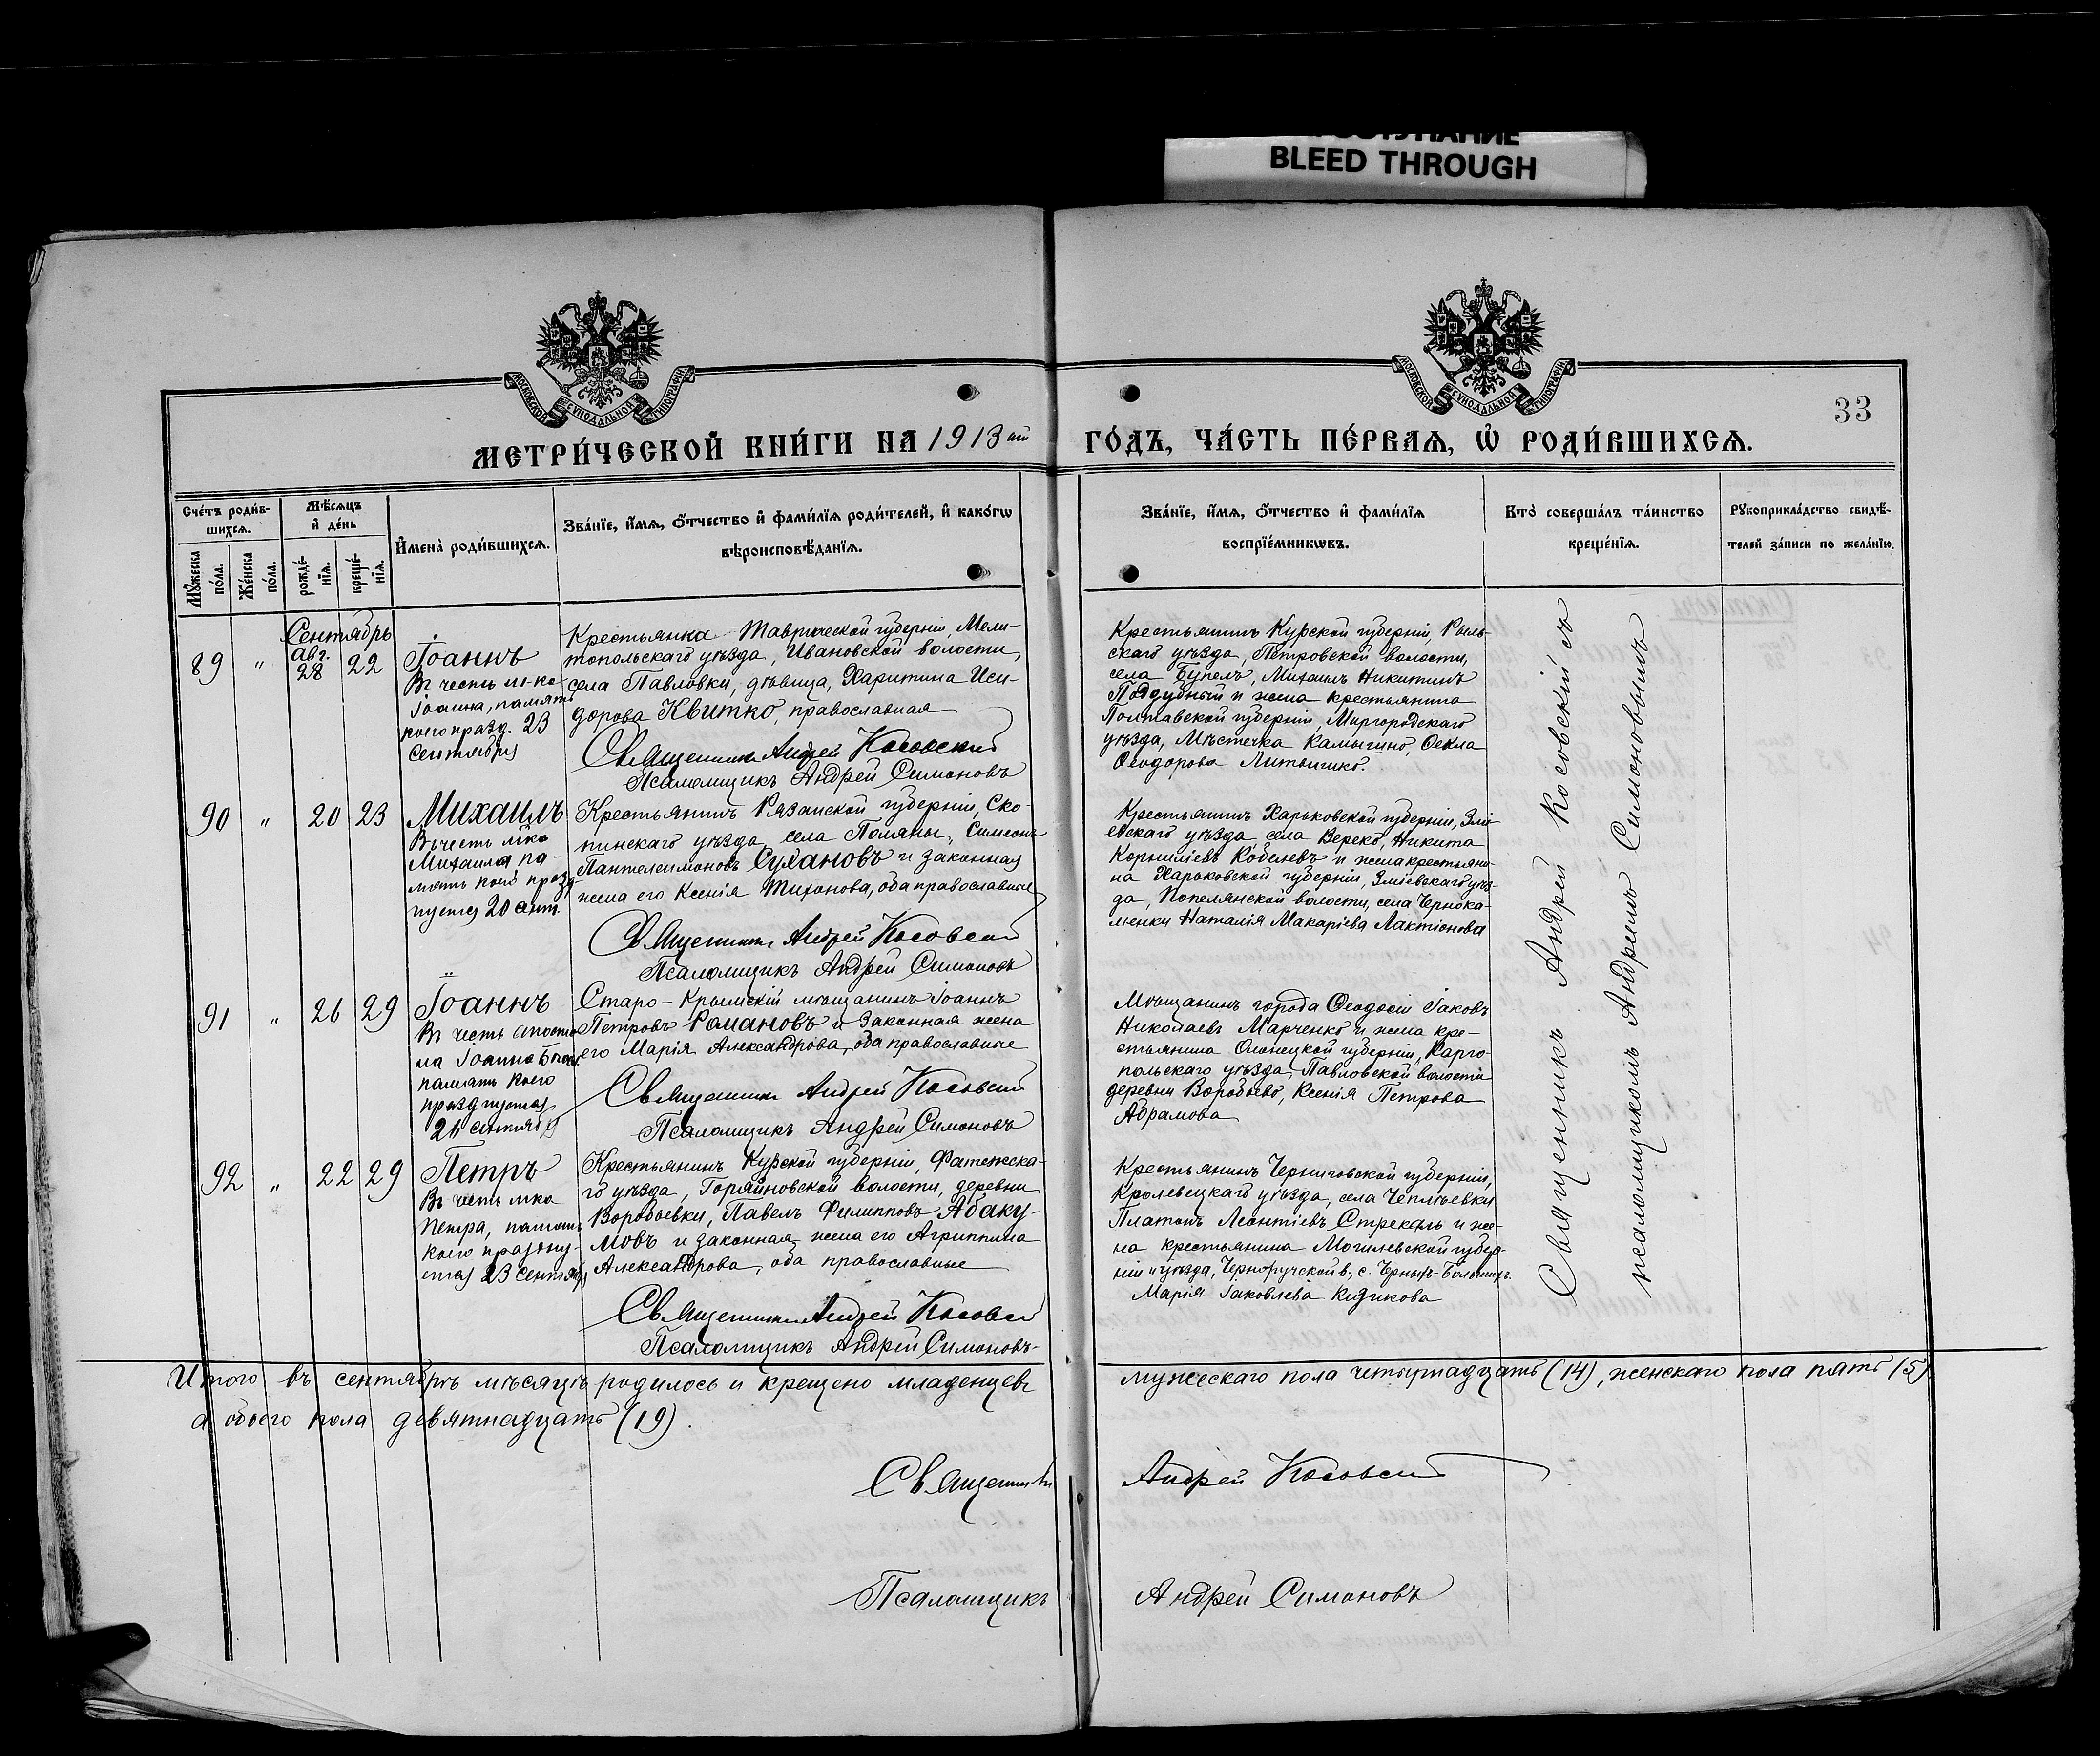 BLEED THROUGH
МОСКОВСКОЙ СѴНОДАЛЬНОЙ ТИПОГРАФІИ
МОСКОВСКОЙ СѴНОДАЛЬНОЙ ТИПОГРАФІИ
33
МЕТРИ́ЧЕСКОЙ КНИ́ГИ НА 1913 ый
ГО́ДЪ, ЧА́СТЬ ПЕ́РВАѦ, Ѡ҆ РОДИ́ВШИХСѦ.
Сче́тъ роди́в-
шихсѧ.
Мꙋ́жеска по́ла.
Же́нска по́ла.
Мѣ́сѧцъ
и҆ де́нь
рожде́-
нїѧ.
креще́-
нїѧ.
И҆мена̀ роди́вшихсѧ.
Зва́нїе, и҆́мѧ, ѻ҆́тчество и҆ фами́лїѧ роди́телей, и҆ како́гѡ
вѣроисповѣ́данїѧ.
Зва́нїе, и҆́мѧ, ѻ҆́тчество и҆ фами́лїѧ
воспрїе́мникѡвъ.
Кто̀ соверша́лъ та́инство
креще́нїѧ.
Рꙋкоприкла́дство свидѣ́-
телей за́писи по жела́нїю.
Сентябрь
89 „ авг. 28 22
Іоаннъ
Въ честь м-ка
Іоанна, память
коего празд. 23
сентября
Крестьянка Таврической губерніи, Мели-
топольскаго уѣзда, Ивановской волости,
села Павловки, дѣвица, Харитина Иси-
дорова Квитко, православная
Священникъ Андрей Косовскій
Псаломщикъ Андрей Симоновъ
Крестьянинъ Курской губерніи, Рыль-
скаго уѣзда, Петровской волости,
села Бупелъ, Михаилъ Никитинъ
Поддубный и жена крестьянина
Полтавской губерніи, Миргородскаго
уѣзда, Мѣстечка Камышно, Ѳекла
Ѳеодорова Литвишко.
90 „ 20 23
Михаилъ
Въ честь м-ка
Михаила па-
мять коего празд-
нуется 20 сент.
Крестьянинъ Рязанской губерніи, Ско-
пинскаго уѣзда, села Поляны, Симеонъ
Пантелеимоновъ Сухановъ и законная
жена его Ксенія Тихонова, оба православные
Священникъ Андрей Косовскій
Псаломщикъ Андрей Симоновъ
Крестьянинъ Харьковской губерніи, Змі-
евскаго уѣзда, села Берекъ, Никита
Корниліевъ Кобелевъ и жена крестьяни-
на Харьковской губерніи, Зміевскаго уѣз-
да, Попелянской волости, села Чернока-
менки Наталія Макаріева Лактіонова
91 „ 26 29
Іоаннъ
Въ честь апосто-
ла Іоанна Богос.
память коего
празднуется
26 сентября
Старо-Крымскій мѣщанинъ Іоаннъ
Петровъ Романовъ и законная жена
его Марія Александрова, оба православные
Священникъ Андрей Косовскій
Псаломщикъ Андрей Симоновъ
Мѣщанинъ города Ѳеодосіи Іаковъ
Николаевъ Марченко и жена кре-
стьянина Олонецкой губерніи, Карго-
польскаго уѣзда, Павловской волости
деревни Воробьево, Ксенія Петрова
Абрамова
92 „ 22 29
Петръ
Въ честь м-ка
Петра, память
коего праздну-
ется 23 сентября
Крестьянинъ Курской губерніи, Фатежска-
го уѣзда, Горяйновской волости, деревни
Воробьевки, Павелъ Филипповъ Абаку-
мовъ и законная жена его Агриппина
Александрова, оба православные
Священникъ Андрей Косовскій
Псаломщикъ Андрей Симоновъ
Крестьянинъ Черниговской губерніи,
Кролевецкаго уѣзда, села Чепліевки
Платонъ Леонтіевъ Стрекаль и же-
на крестьянина Могилевской губер-
ніи и уѣзда, Черноручской в., с.
Марія Іаковлева
Священникъ Андрей Косовскій съ
псаломщикомъ Андреемъ Симоновымъ
Итого въ сентябрѣ мѣсяцѣ родилось и крещено младенцевъ
мужескаго пола четырнадцать (14), женскаго пола пять (5)
а обоего пола девятнадцать (19).
Священникъ
Андрей Косовскій
Псаломщикъ
Андрей Симоновъ